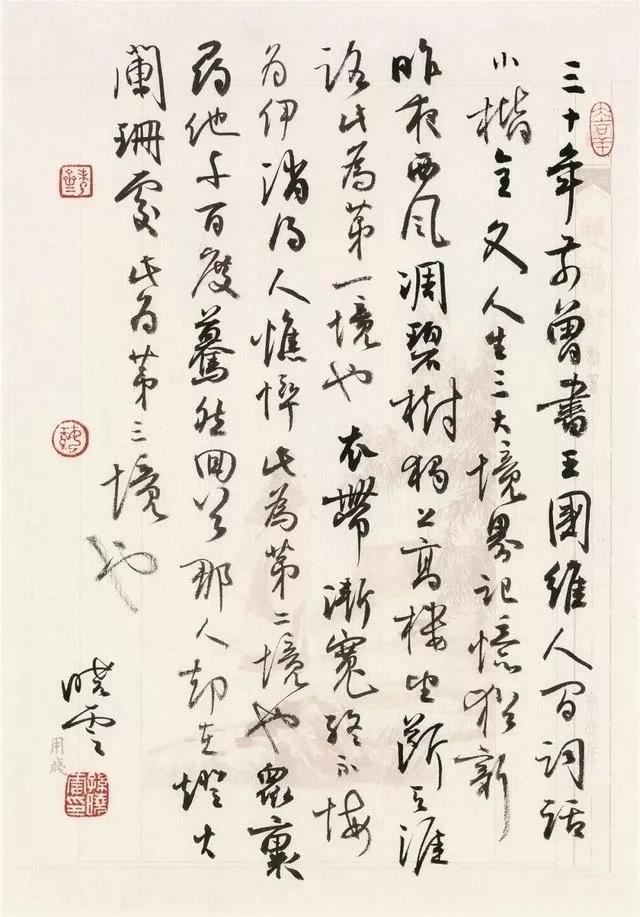 三十年前曾書王國維人間詞話
小楷全文人生三大境界記憶猶新
昨夜西風凋碧樹獨上高樓望斷天涯
路此為第一境也衣帶漸寬終不悔
為伊消得人憔悴此為第二境也眾裏
尋他千百度驀然回首那人却在燈火
闌珊處此為第三境也
曉雲
用箋
孫曉雲印
大吉羊